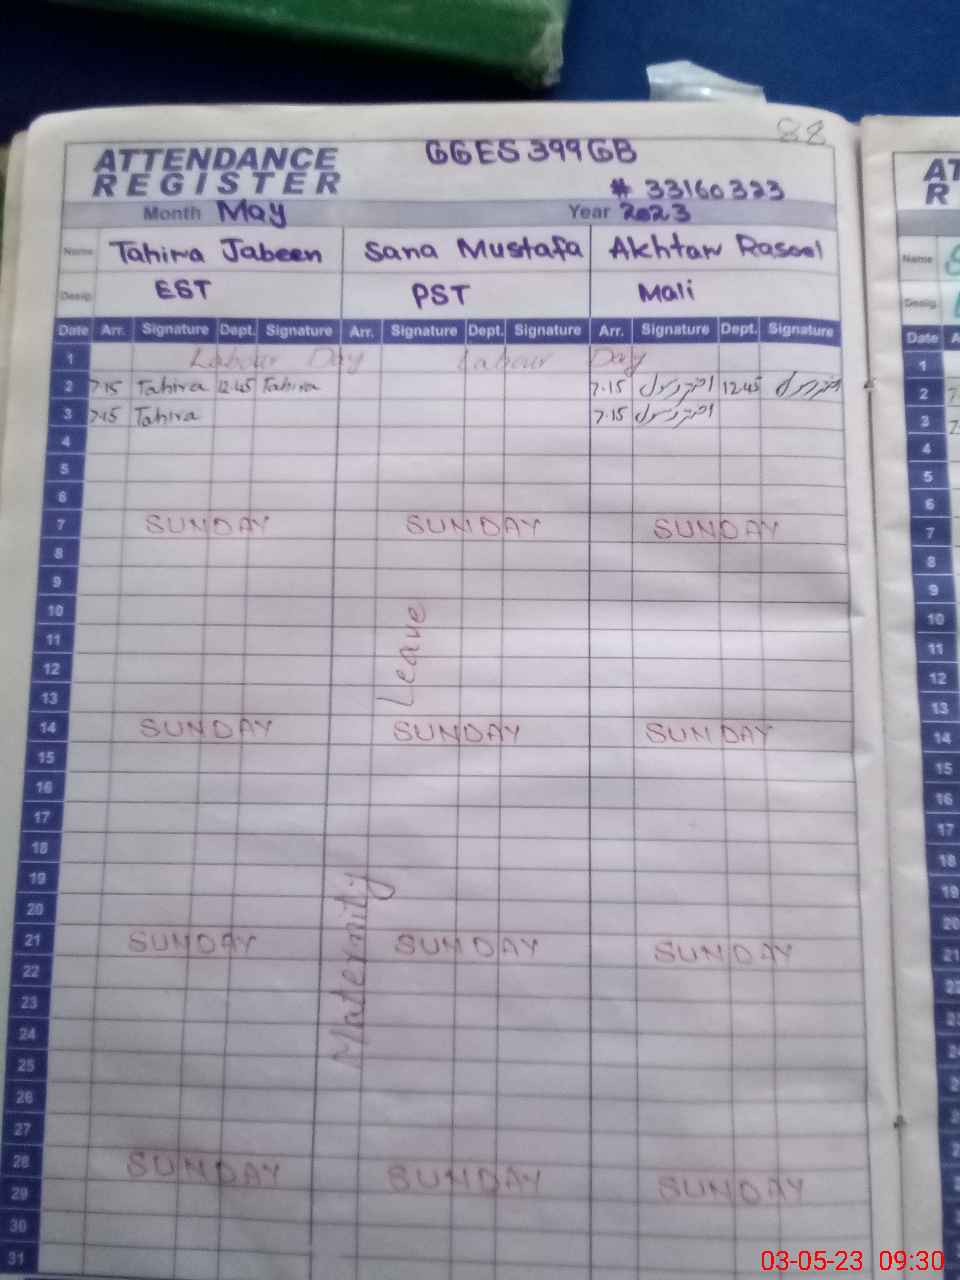 88
ATTENDANCE REGISTER
GGES 399 GB
# 33160323
Month May Year 2023
Name Tahira Jabeen Sana Mustafa Akhtar Rasool
Desig. EST PST Mali
Date Arr. Signature Dept. Signature Arr. Signature Dept. Signature Arr. Signature Dept. Signature
1 Labour Day Labour Day
2 7.15 Tahira 12.45 Tahira 7.15 اختر رسول 12.45 اختر رسول
3 7.15 Tahira 7.15 اختر رسول
4
5
6
7 SUNDAY SUNDAY SUNDAY
8
9
10
11
12
13
14 SUNDAY SUNDAY SUNDAY
15
16
17
18
19
20
21 SUNDAY SUNDAY SUNDAY
22
23
24
25
26
27
28 SUNDAY SUNDAY SUNDAY
29
30
31
Maternity Leave
AT
R
Name
Desig.
Date A
1
2
3
4
5
6
7
8
9
10
11
12
13
14
15
16
17
18
19
20
21
22
03-05-23 09:30